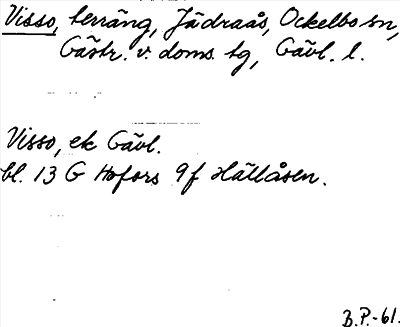 Visso, terräng, Jädraås, Ockelbo sn,
Gästr. v. doms. tg, Gävl. l.
Visso, ek Gävl.
bl. 13 G Hofors 9f Hällåsen.
B.P.-61.